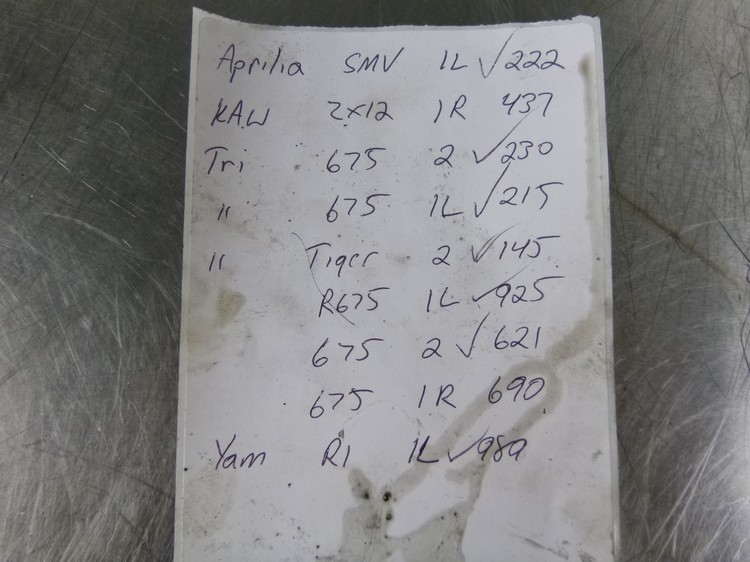 Aprilia SMV 1L ✓ 222
KAW ZX12 1R 437
Tri 675 2 ✓ 230
" 675 1L ✓ 215
" Tiger 2 ✓ 145
R675 1L ✓ 925
675 2 ✓ 621
675 1R 690
Yam R1 1L ✓ 989